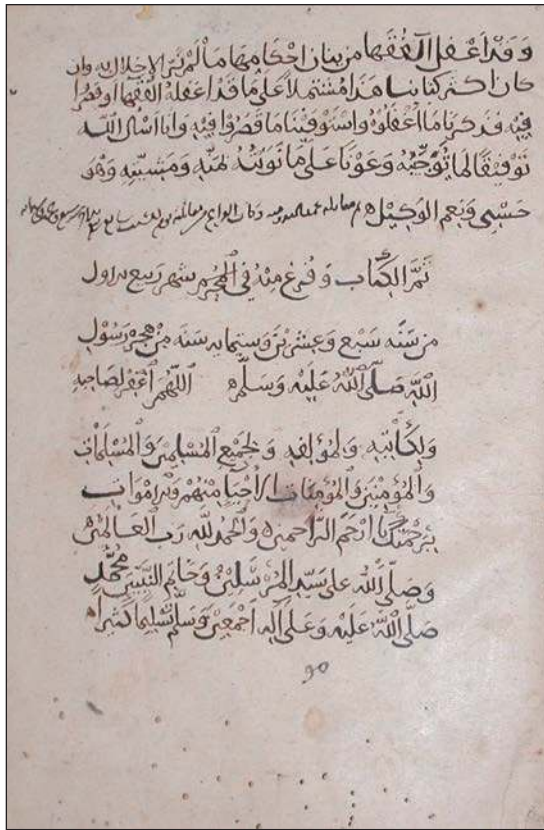 وقد اغفل الفقها من بيان احكامها ما لم نر الإخلال به وان
كان اكثر كتابنا هذا مشتملا على ما قد اغفله الفقها او قصروا
فيه فذكرنا ما اغفلوه واستوفينا ما قصروا فيه وانا اسال الله
توفيقا لما توخيته وعونا على ما نويته بمنه ومشيئته وهو
حسبي ونعم الوكيل
تم الكتاب وفرغ منه في شهر ربيع الاول
من سنه سبع وعشرين وستمايه سنه من هجره رسول
الله صلى الله عليه وسلم اللهم اغفر لصاحبه
ولكاتبه ولمؤلفه ولجميع المسلمين والمسلمات
والمؤمنين والمؤمنات الاحيا منهم والاموات
برحمتك يا ارحم الراحمين والحمد لله رب العالمين
وصلى الله على سيد المرسلين وخاتم النبيين محمد
صلى الله عليه وعلى آله اجمعين وسلم تسليما كثيرا